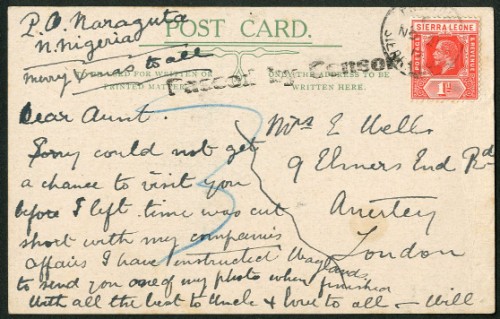 P.O. Naraguta
N. Nigeria
Merry Xmas to all
POST CARD.
FOR WRITTEN OR
PRINTED MATTER
ONLY
THE ADDRESS TO BE
WRITTEN HERE.
Passed by Censor
SIERRA LEONE
POSTAGE
& REVENUE
1d
3
Dear Aunt.
Sorry could not get
a chance to visit you
before I left. time was cut
short with my companies
affairs I have instructed
to send you one of my photo when finished
With all the best to Uncle & love to all – Will
Mrs E Wells
9 Elmers End Rd
Anerley
London